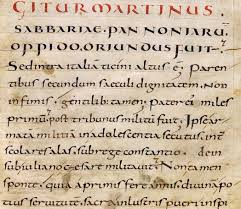 GITUR MARTINUS.
SABBARIAE. PAN NONIARU.
OPPIDO. ORIUNDUS FUIT.
Sedintra italiā ticini altus ē. Paren
tibus secundum saeculi dignitatem. Non
infimis. gentilib; tamen. Pater ei miles
primū. post tribunus militum fuit. Ipse ar
mată militiā inadolescentia secutus. int
scolares alas. subrege constantio. dein
subiuliano cęsare militavit. Non tamen
sponte. quia aprimis fere annis. divina po
tius servitute. sacra inlustris pueri inspi